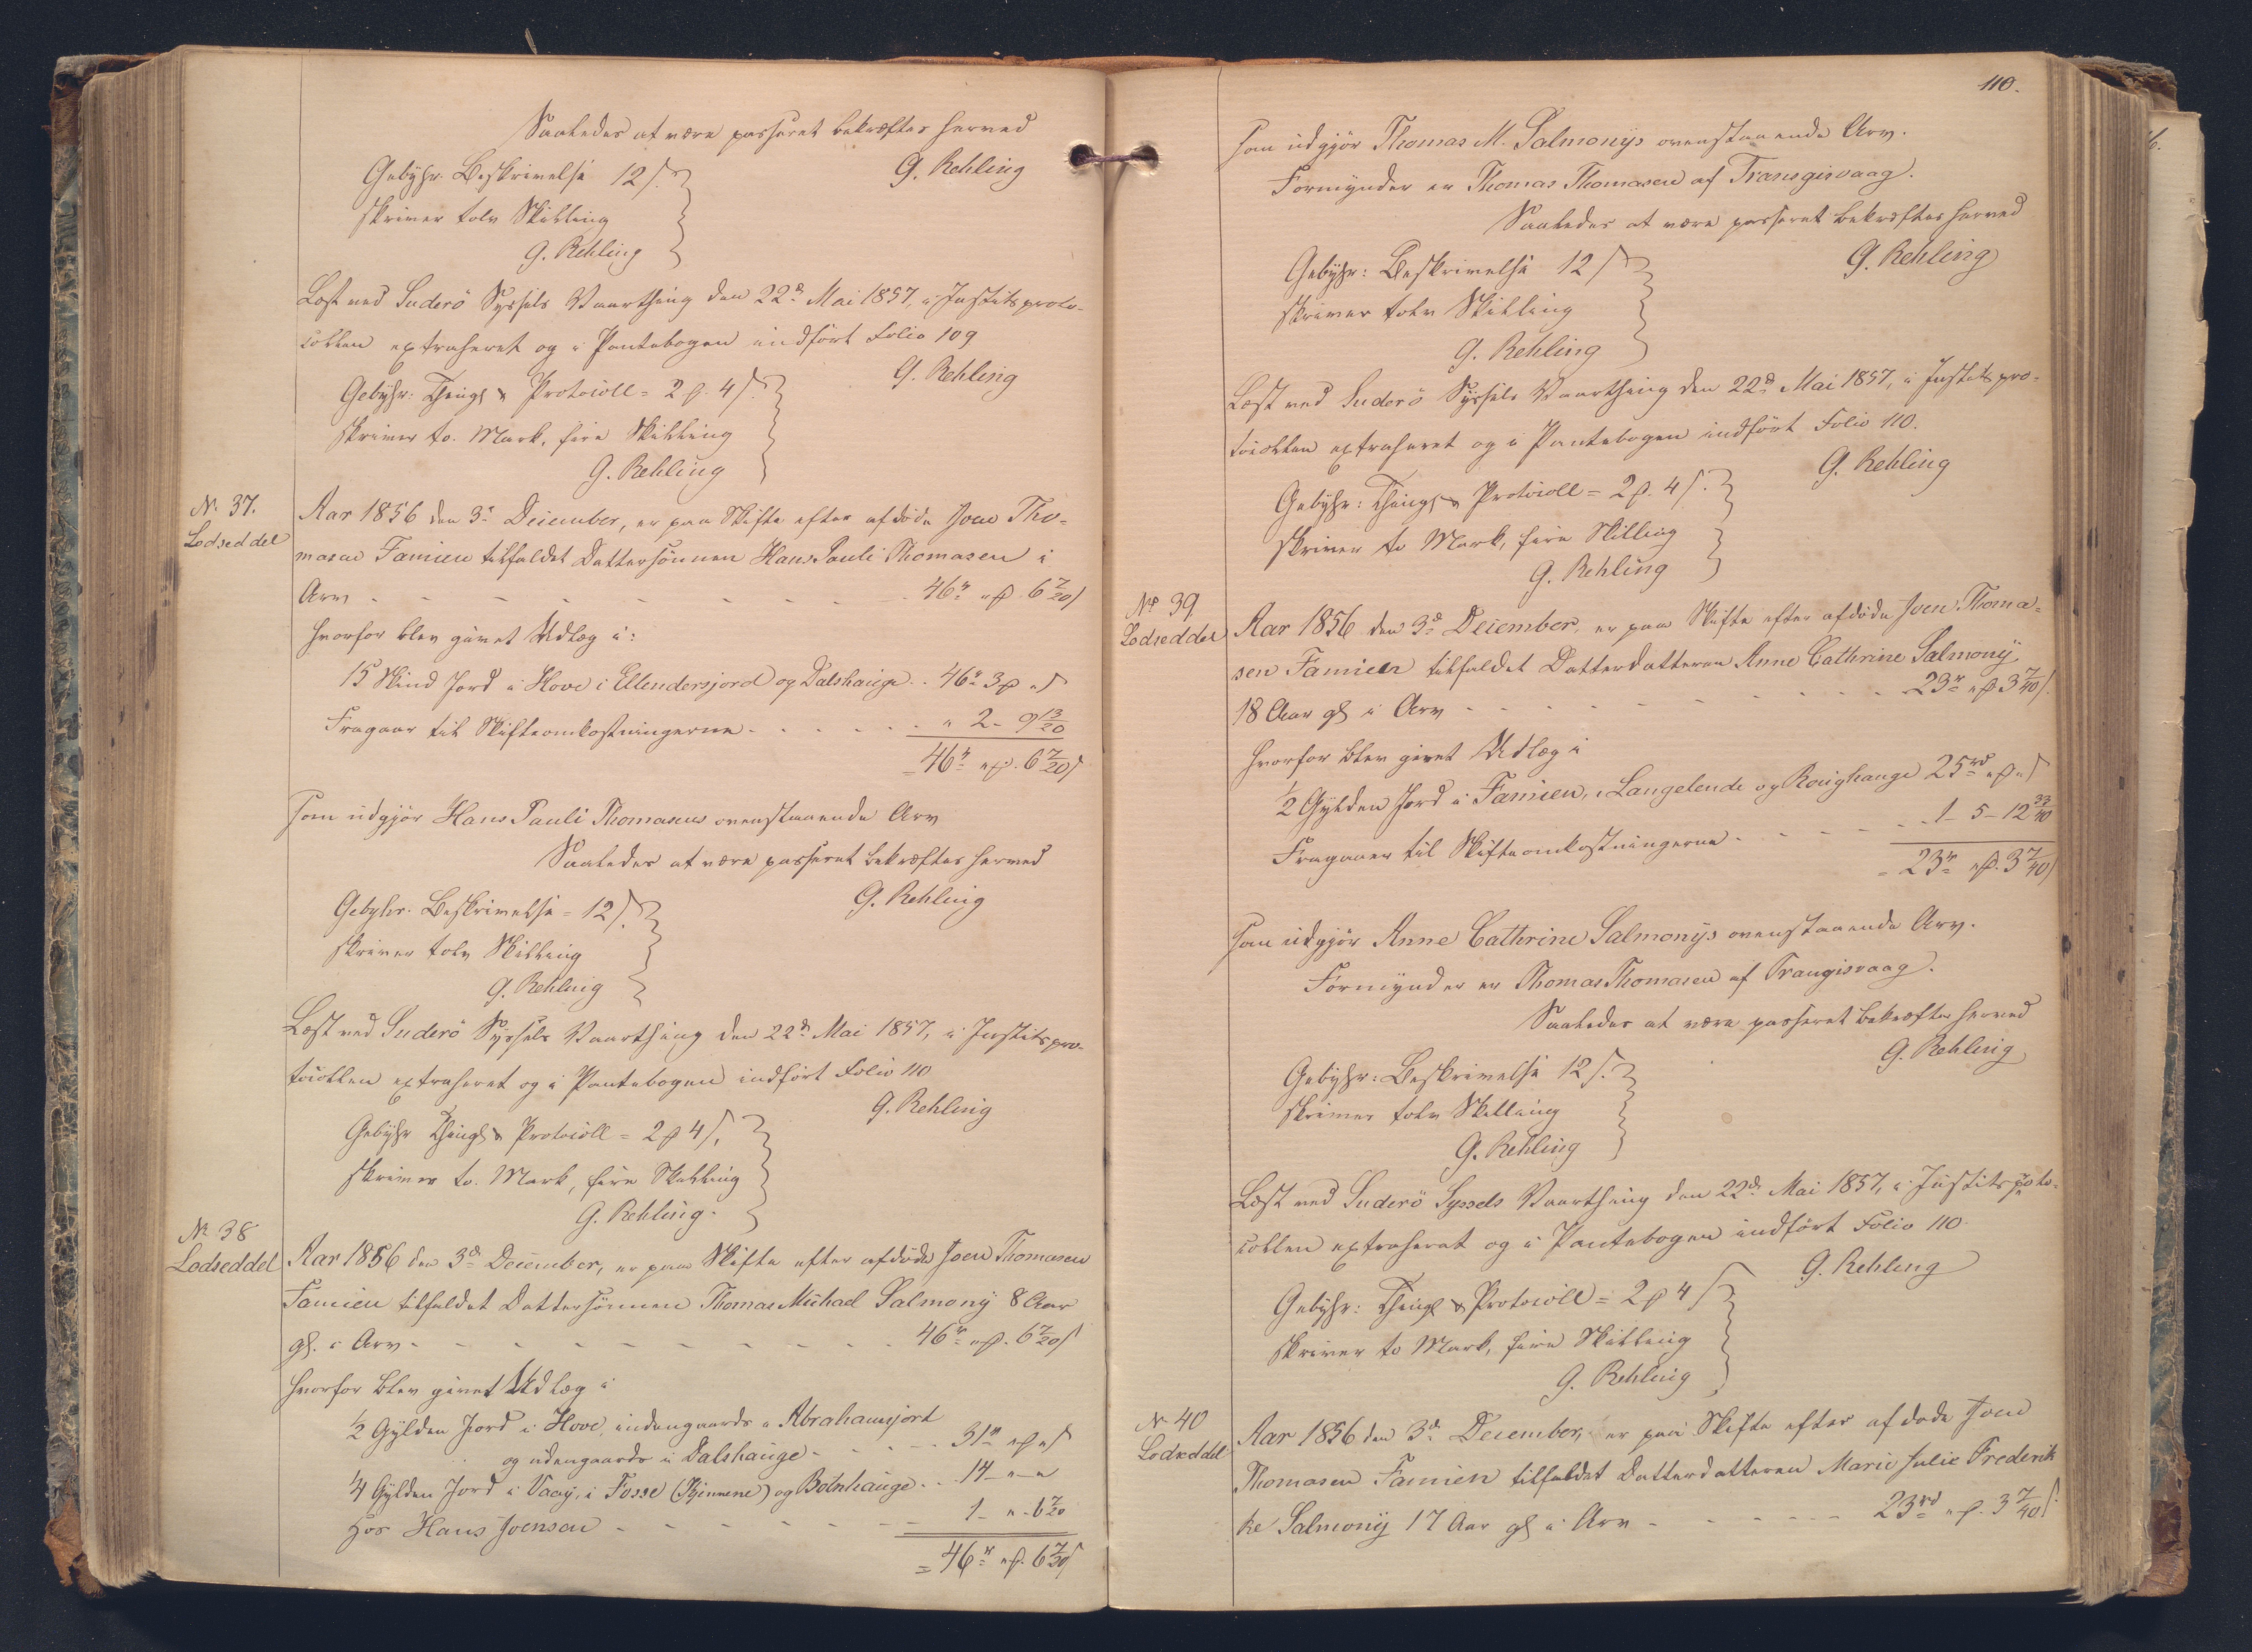 Saaledes at være passeret bekræftes herved
G. Rehling
Gebyhr. Beskrivelse 12 s.
skriver tolv Skilling
G. Rehling
Læst ved Suderö Syssels Vaarthing den 22d Mai 1857, i Justitsproto-
collen extraheret og i Pantebogen indført Folio 109
G. Rehling
Gebyhr: Thingl & Protocoll = 2 p. 4 s.
skriver to. Mark, fire Skilling
G. Rehling
No. 37.
Lodseddel
Aar 1856 den 3d December, er paa Skifte efter afdøde Joen Tho-
masen Famien tilfaldet Dattersønnen Hans Pauli Thomasen i
Arv - - - - - - - - - - 46r „p. 6 7/20 s
hvorfor blev givet Udlæg i:
15 Skind Jord i Hove i Ellendersjord og Dalshauge - - 46r 3p „s
Fragaar til Skifteomkostningerne - - - - - „ 2 - 9 13/20
= 46r „p. 6 7/20 s
som udgjør Hans Pauli Thomasens ovenstaaende Arv
Saaledes at være passeret bekræftes herved
G. Rehling
Gebyhr. Beskrivelse = 12 s.
skriver tolv Skilling
G. Rehling
Læst ved Suderö Syssels Vaarthing den 22d Mai 1857, i Justitspro-
tocollen extraheret og i Pantebogen indført Folio 110
G. Rehling
Gebyhr Thingl & Protocoll = 2 p 4 s.
skriver to. Mark, fire Skilling
G. Rehling.
No 38
Lodseddel
Aar 1856 den 3d December, er paa Skifte efter afdøde Joen Thomasen
Famien tilfaldet Dattersønnen Thomas Michael Salmony 8 Aar
gl. i Arv - - - - - - - - - - 46r „p. 6 7/20 s
hvorfor blev givet Udlæg i
1/2 Gylden Jord i Hove, indengaards i Abrahamsjort
og udengaards i Dalshauge - - - - 31r „p „s
1/4 Gylden Jord i Vaag, i Fosse (Kjennene) og Botnhauge - - 14 - „ - „
hos Hans Joensen - - - - - - - 1 - „ - 6 7/20
= 46r „p. 6 7/20 s
110.
som udgjør Thomas M. Salmonys ovenstaaende Arv.
Formynder er Thomas Thomasen af Transgisvaag.
Saaledes at være passeret bekræftes herved
G. Rehling
Gebyhr: Beskrivelse 12 s
skriver tolv Skilling
G. Rehling
Læst ved Suderö Syssels Vaarthing den 22d Mai 1857, i Justitspro-
tocollen extraheret og i Pantebogen indført Folio 110.
G. Rehling
Gebyhr: Thingl & Protocoll = 2 p. 4 s.
skriver to Mark, fire Skilling
G. Rehling
No 39
Lodseddel
Aar 1856 den 3d December, er paa Skifte efter afdøde Joen Thoma-
sen Famien tilfaldet Datterdatteren Anne Cathrine Salmony
18 Aar gl i Arv - - - - - - - - 23r „p 3 7/40 s.
hvorfor blev givet Udlæg i
1/2 Gylden Jord i Famien, i Langelende og Roughauge 25rd „p „s
Fragaaer til Skifteomkostningerne - - - - - 1 - 5 - 12 33/40
= 23r „p. 3 7/40 s
som udgjør Anne Cathrine Salmonys ovenstaaende Arv.
Formynder er Thomas Thomasen af Trangisvaag.
Saaledes at være passeret bekræftes herved
G. Rehling
Gebyhr: Beskrivelse 12 s.
skriver tolv Skilling
G. Rehling
Læst ved Suderö Syssels Vaarthing den 22d Mai 1857, i Justitsproto-
collen extraheret og i Pantebogen indført Folio 110.
G. Rehling
Gebyhr: Thingl & Protocoll = 2 p 4 s
skriver to Mark, fire Skilling
G. Rehling
No 40
Lodseddel
Aar 1856 den 3d December, er paa Skifte efter afdøde Joen
Thomasen Famien tilfaldet Datterdatteren Marie Julie Frederik
ke Salmony 17 Aar gl i Arv - - - - - - 23rd „p. 3 7/40 s.